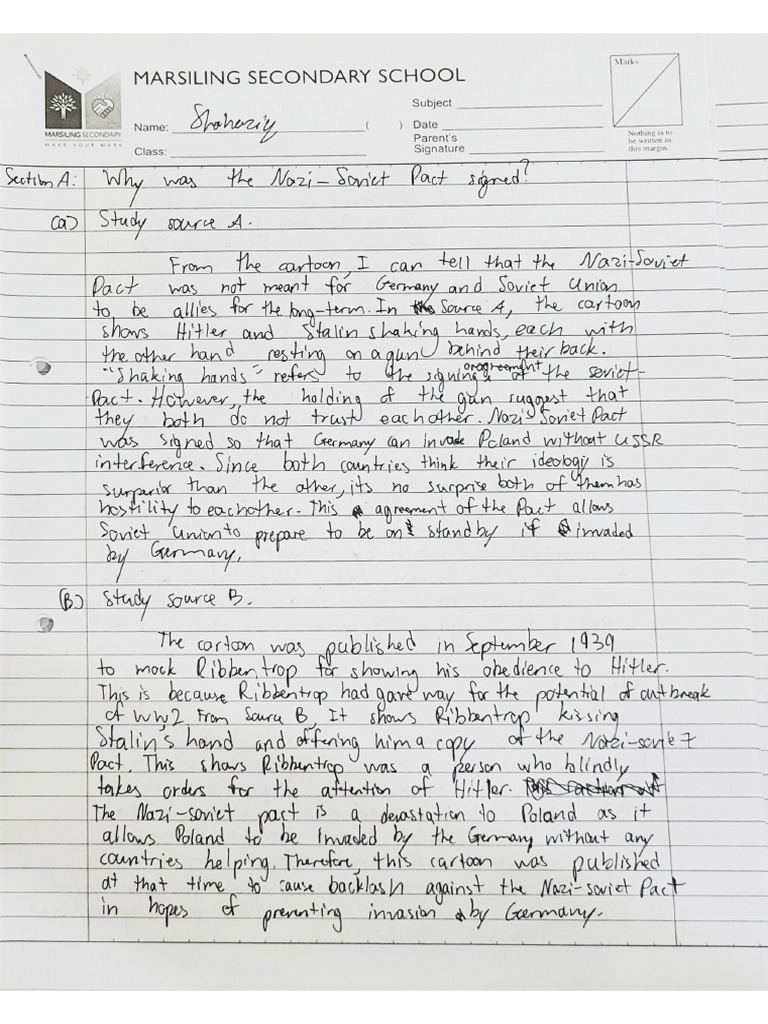 MARSILING SECONDARY SCHOOL
MARSILING SECONDARY
MAKE YOUR MARK
Marks
Subject
Name: ( ) Date
Parent's
Class: Signature
Nothing is to
be written in
this margin.
Section A: Why was the Nazi-Soviet Pact signed?
(a) Study source A.
From the cartoon, I can tell that the Nazi-Soviet
Pact was not meant for Germany and Soviet Union
to be allies for the long-term. In Source A, the cartoon
shows Hitler and Stalin shaking hands, each with
the other hand resting on a gun behind their back.
"Shaking hands" refers to the signing or agreement of the soviet-
Pact. However, the holding of the gun suggest that
they both do not trust eachother. Nazi-Soviet Pact
was signed so that Germany can invade Poland without USSR
interference. Since both countries think their ideology is
surperior than the other, its no surprise both of them has
hostility to eachother. This agreement of the Pact allows
Soviet Union to prepare to be on standby if invaded
by Germany.
(B) Study source B.
The cartoon was published in September 1939
to mock Ribbentrop for showing his obedience to Hitler.
This is because Ribbentrop had gave way for the potential of outbreak
of WW2. From Source B, It shows Ribbentrop kissing
Stalin's hand and offering him a copy of the Nazi-soviet
Pact. This shows Ribbentrop was a person who blindly
takes orders for the attention of Hitler.
The Nazi-soviet pact is a devastation to Poland as it
allows Poland to be Invaded by the Germany without any
countries helping. Therefore, this cartoon was published
at that time to cause backlash against the Nazi-soviet Pact
in hopes of preventing invasion by Germany.